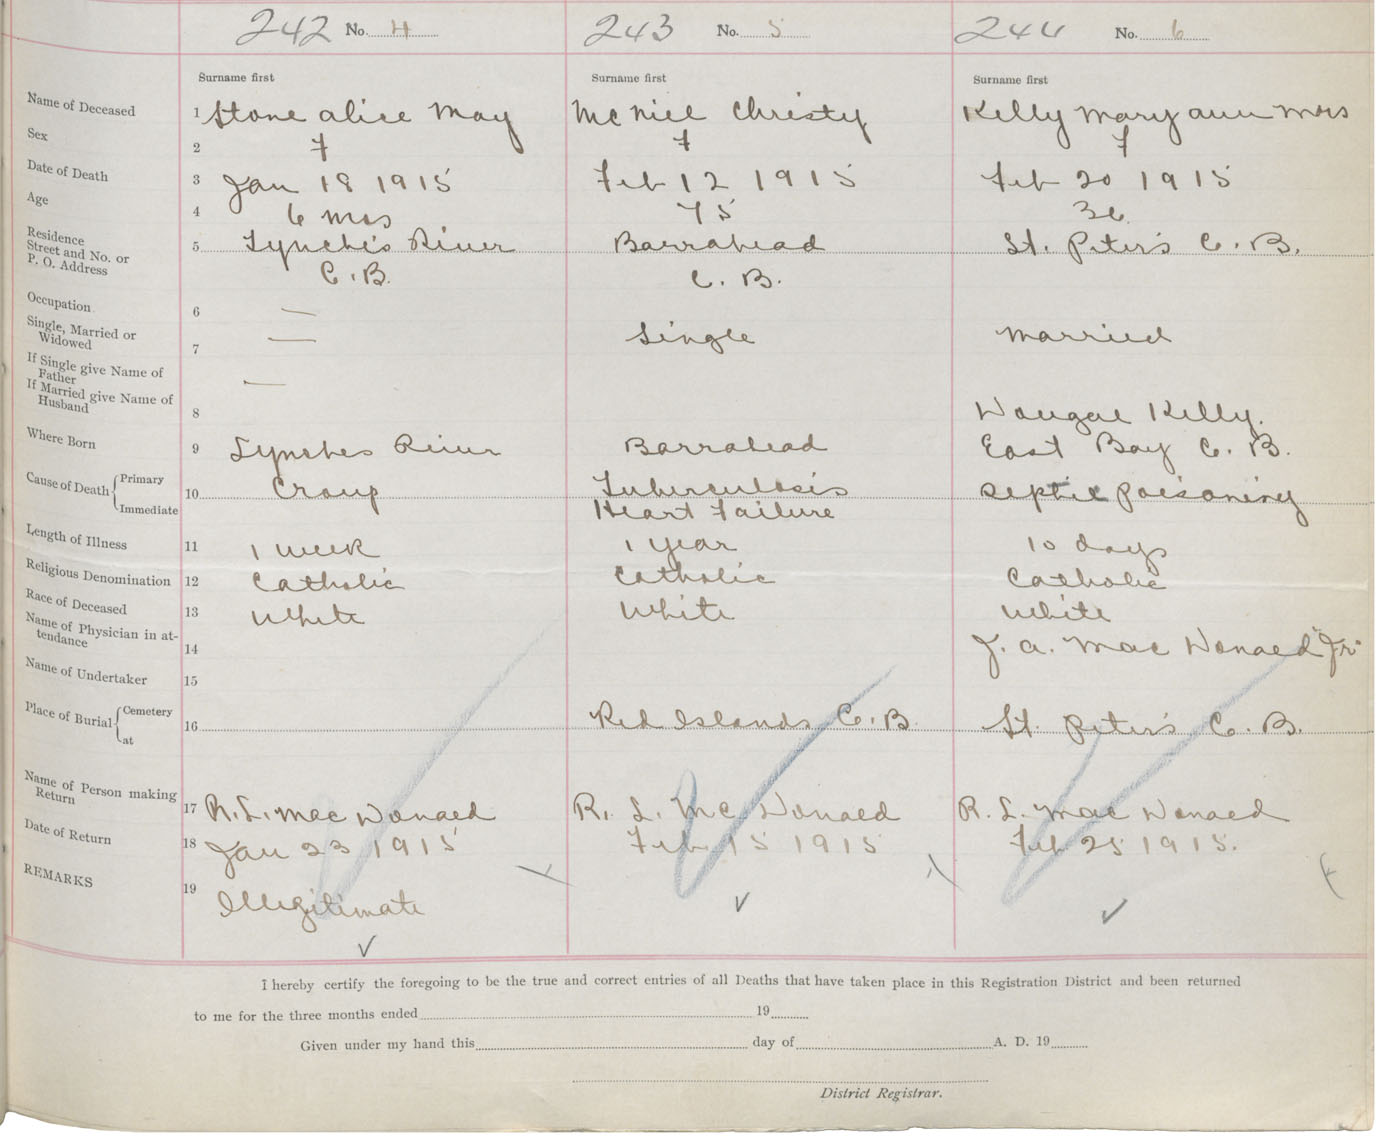 242 No. 4 243 No. 5 244 No. 6
Surname first Surname first Surname first
Name of Deceased 1 Stone Alice May McNiel Christy Kelly Mary Ann Mrs
Sex 2 F F F
Date of Death 3 Jan 18 1915 Feb 12 1915 Feb 20 1915
Age 4 6 mos 75 36
Residence
Street and No. or
P. O. Address 5 Lynche's River Barrahead St. Peter's C. B.
C. B. C. B.
Occupation 6 —
Single, Married or
Widowed 7 — Single Married
If Single give Name of
Father —
If Married give Name of
Husband 8 Dougal Kelly.
Where Born 9 Lynches River Barrahead East Bay C. B.
Cause of Death Primary 10 Croup Tuberculosis Septic Poisoning
Immediate Heart Failure
Length of Illness 11 1 week 1 year 10 days
Religious Denomination 12 Catholic Catholic Catholic
Race of Deceased 13 White White White
Name of Physician in at-
tendance 14 J. A. MacDonald "Jr"
Name of Undertaker 15
Place of Burial Cemetery 16 Red Islands C. B. St. Peter's C. B.
at
Name of Person making
Return 17 R. L. MacDonald R. L. McDonald R. L. MacDonald
Date of Return 18 Jan 23 1915 Feb 15 1915 Feb 25 1915.
REMARKS 19 Illegitimate
I hereby certify the foregoing to be the true and correct entries of all Deaths that have taken place in this Registration District and been returned
to me for the three months ended 19
Given under my hand this day of A. D. 19
District Registrar.